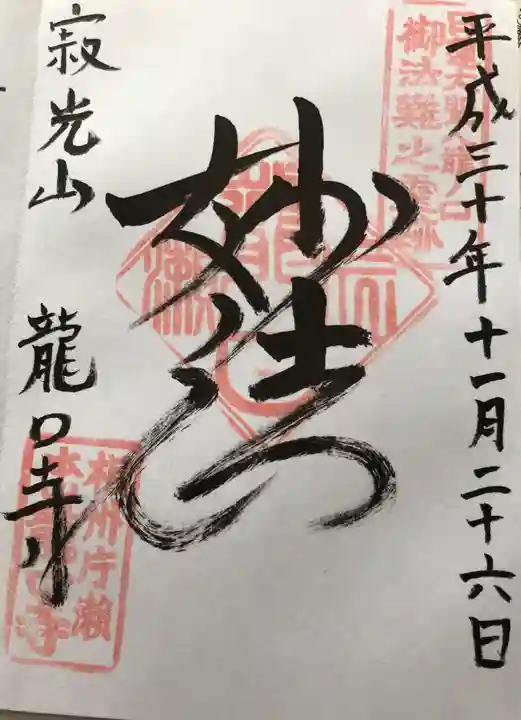 平成三十年十一月二十六日
御法難之霊跡
妙法
寂光山 龍口寺
相州片瀬